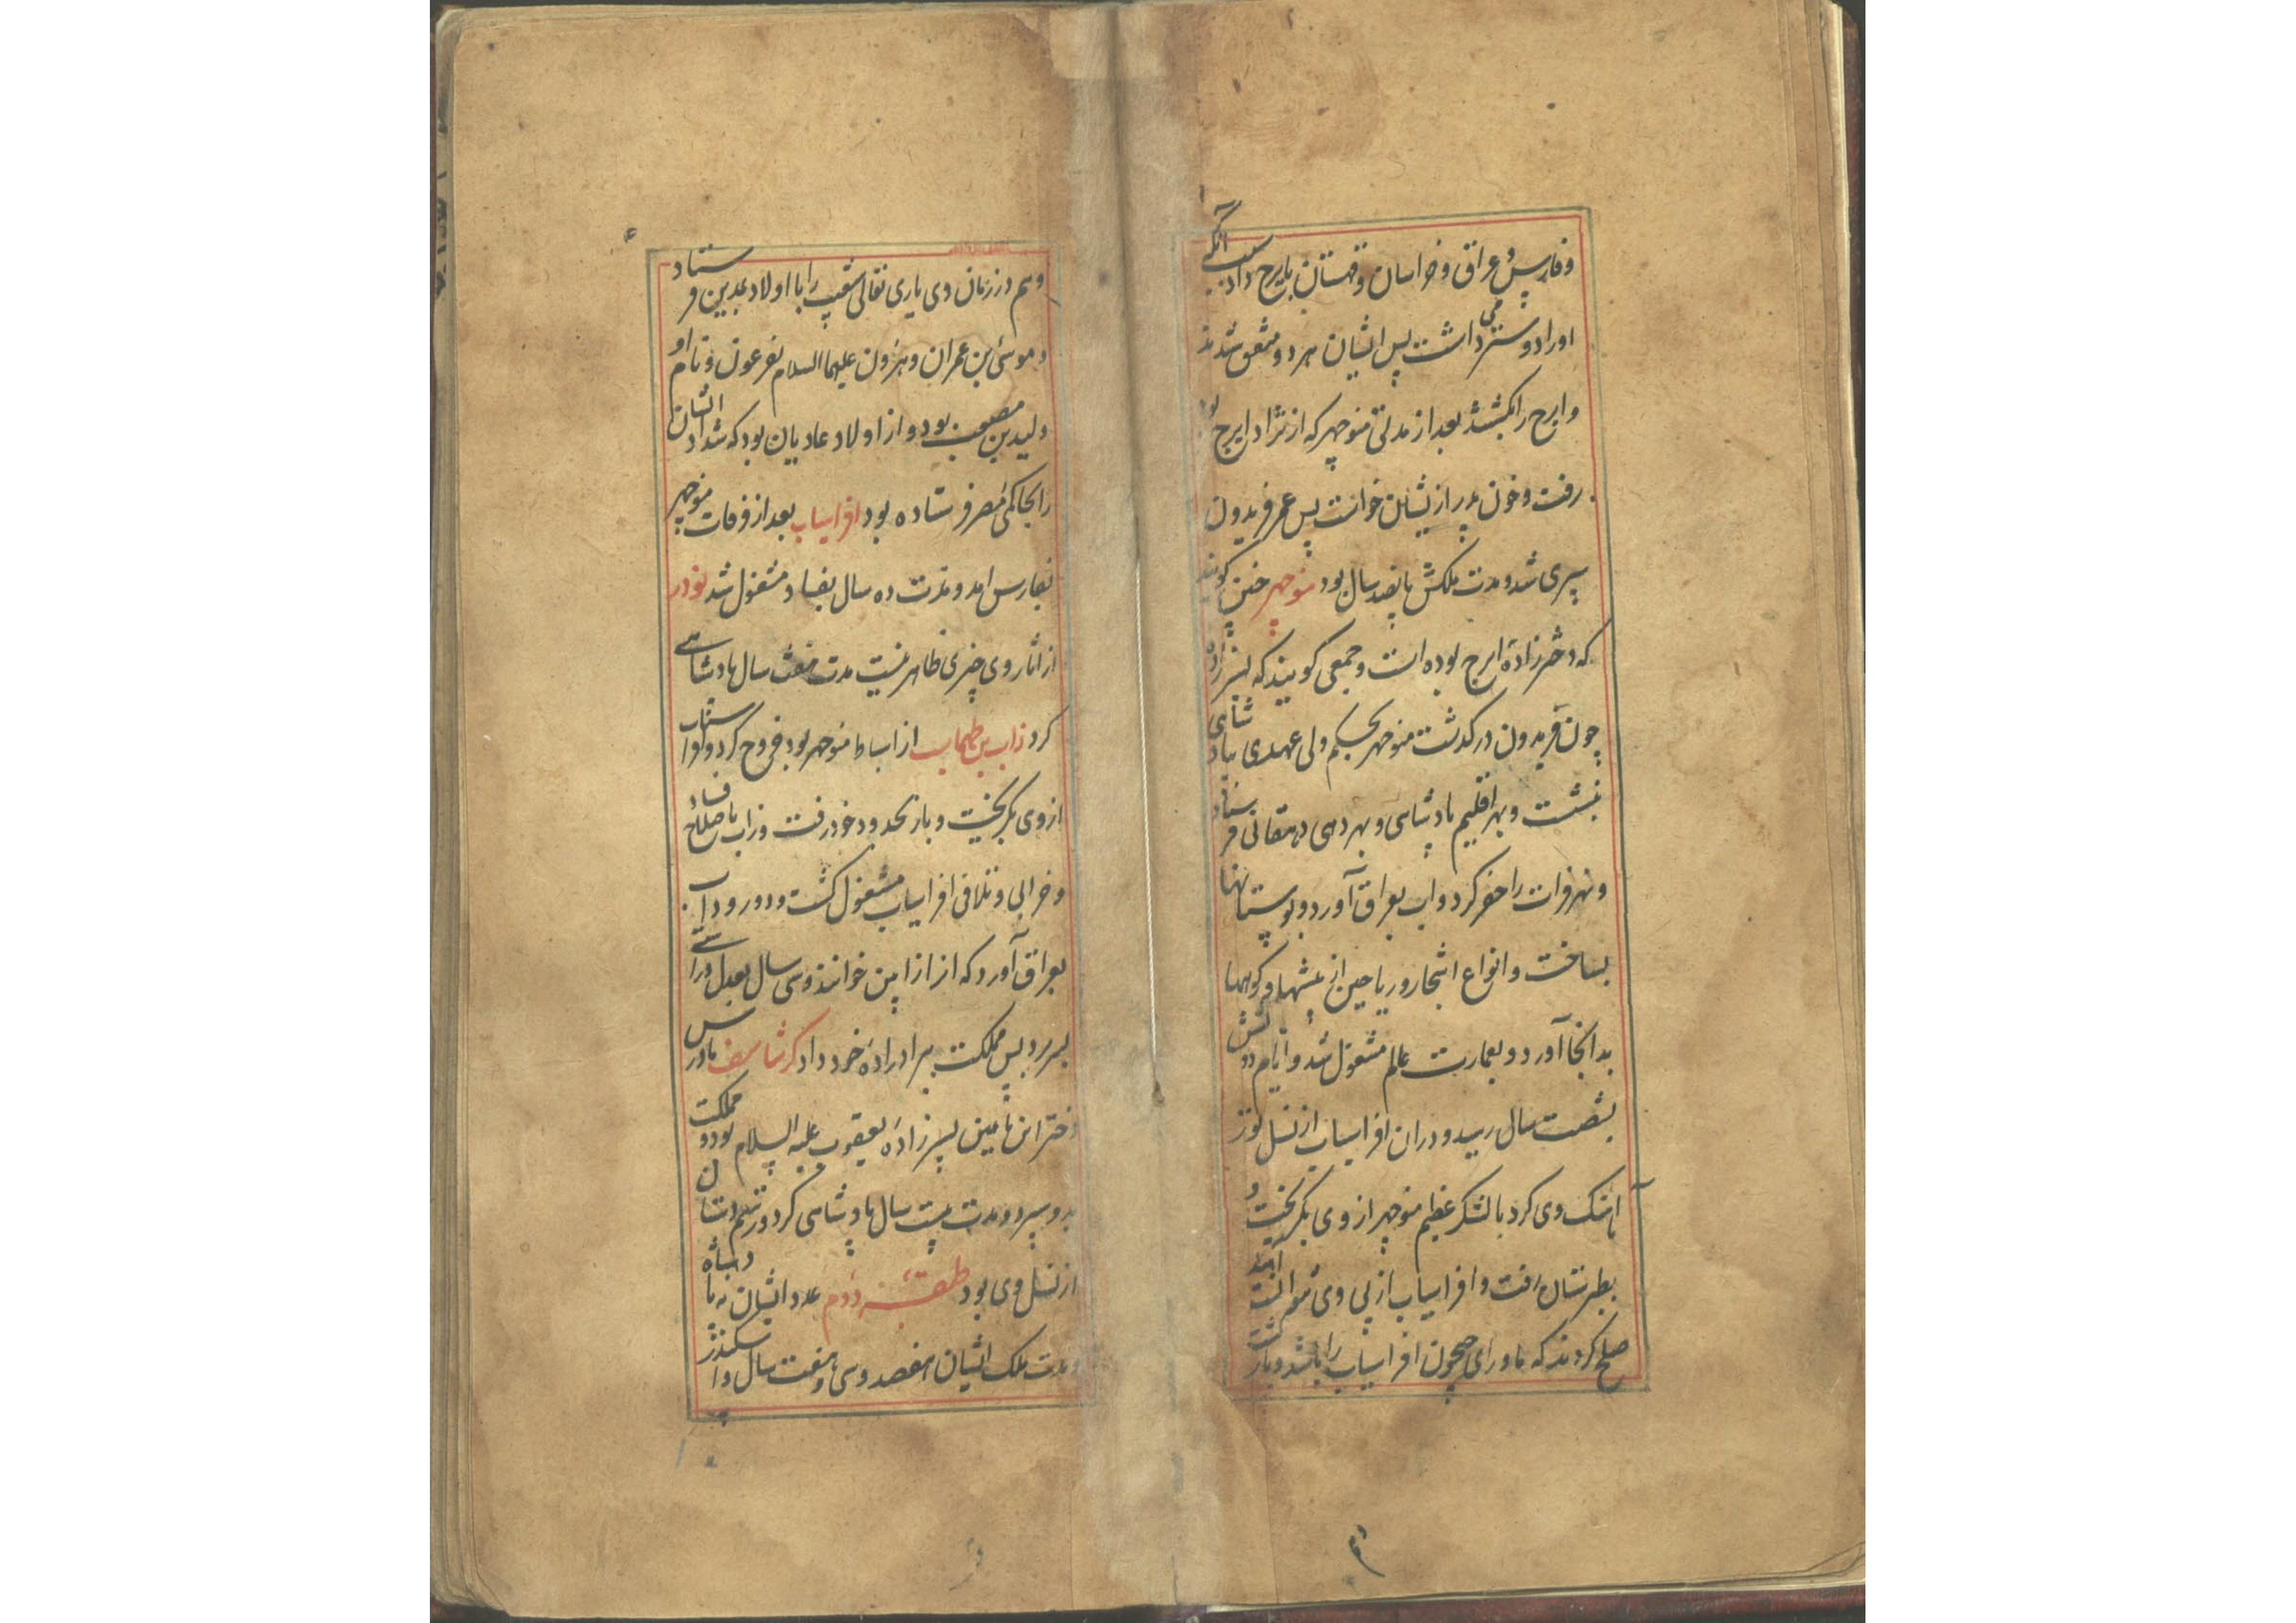 وفارس و عراق و خراسان و قهستان بایرج داد بسبب آنکه
اورا دوستر می داشت پس ایشان هر دو متفق شدند
و ایرج را بکشتند بعد از مدتی منوچهر که از نژاد ایرج بود
برفت و خون پدر از یشان خواست پس عمر فریدون
سپری شد و مدت ملکش پانصد سال بود منوچهر چنین گویند
که دختر زادهٔ ایرج بوده است و جمعی گویند که پسر زاده
چون فریدون در گذشت منوچهر بحکم ولی عهدی بپادشاهی
بنشست و بهر اقلیم پادشاهی و بهر دهی دهقانی فرستاد
و نهر فرات را حفر کرد و اب بعراق آورد و بوستانها
بساخت و انواع اشجار و ریاحین از بیشها و کوهها
بدانجا آورد و بعمارت عالم مشغول شد و ایام دولتش
بشصت سال رسید و دران افراسیاب از نسل تور
آهنک وی کرد با لشکر عظیم منوچهر از وی بگریخت و
بطبرستان رفت و افراسیاب از پی وی نتوانست آمد
صلح کردند که ماورای جیحون افراسیاب را باشد و باز گشت
و هم در زمان وی باری تعالی شعیب را با اولاد مدین فرستاد
و موسی بن عمران و هرون علیهما السلام بفرعون و نام او
ولید بن مصعب بود و از اولاد عادیان بود که شداد ایشان
را بحاکمی مصر فرستاده بود افراسیاب بعد از وفات منوچهر
بفارس امد و مدت ده سال بفساد مشغول شد نوذر
از اثار وی چیزی ظاهر نیست مدت هفت سال پادشاهی
کرد زاب بن طهماسب از اسباط منوچهر بود خروج کرد و افراسیاب
از وی بگریخت و باز بحدود خود رفت و زاب باصلاح فساد
و خرابی و تلافی افراسیاب مشغول گشت و دو رود اب
بعراق آورد که انرا زابین خوانند و سی سال بعدل و راستی
بسر برد پس مملکت ببرادرزادهٔ خود داد کرشاسف مادرش
دختر ابن یامین پسر زادهٔ یعقوب علیه السلام بود و مملکت
بدو سپرد و مدت بیست سال پادشاهی کرد و رستم دستان
از نسل وی بود طبقهٔ دوم عدد ایشان نه پادشاه
و مدت ملک ایشان هفصد و سی و هفت سال و اسکندر